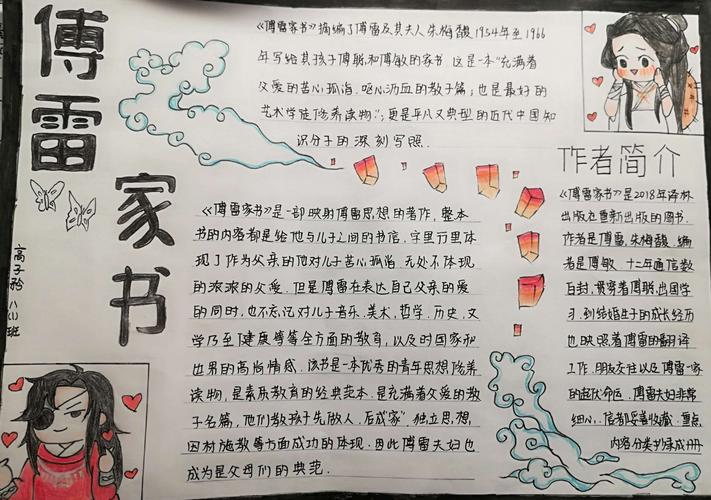 傅雷
家书
高子 八(1)班
《傅雷家书》摘编了傅雷及其夫人朱梅馥1954年至1966
年写给其孩子傅聪和傅敏的家书 这是一本“充满着
父爱的苦心孤诣、呕心沥血的教子篇；也是最好的
艺术学徒修养读物”；更是平凡又典型的近代中国知
识分子的深刻写照.
《傅雷家书》是一部映射傅雷思想的著作，整本
书的内容都是给他与儿子之间的书信，字里行里体
现了作为父亲的他对儿子苦心孤诣.无处不体现
的浓浓的父爱.但是傅雷在表达自己父亲的爱
的同时，也不忘记对儿子音乐，美术，哲学，历史，文
学乃至于健康等等全方面的教育，以及对国家和
世界的高尚情感.该书是一本优秀的青年思想修养
读物，是素质教育的经典范本.是充满着父爱的教
子名篇，他们教孩子先做人，后成“家”，独立思想，
因材施教等方面成功的体现.因此傅雷夫妇也
成为是父母们的典范.
作者简介
《傅雷家书》是2018年译林
出版在重新出版的图书.
作者是傅雷，朱梅馥，编
者是傅敏.十二年通信数
百封，贯穿着傅聪出国学
习，到结婚生子的成长经历
也映照着傅雷的翻译
工作.朋友交往以及傅雷一家
的起伏命运.傅雷夫妇非常
细心.信都妥善收藏.重点
内容分类抄录成册